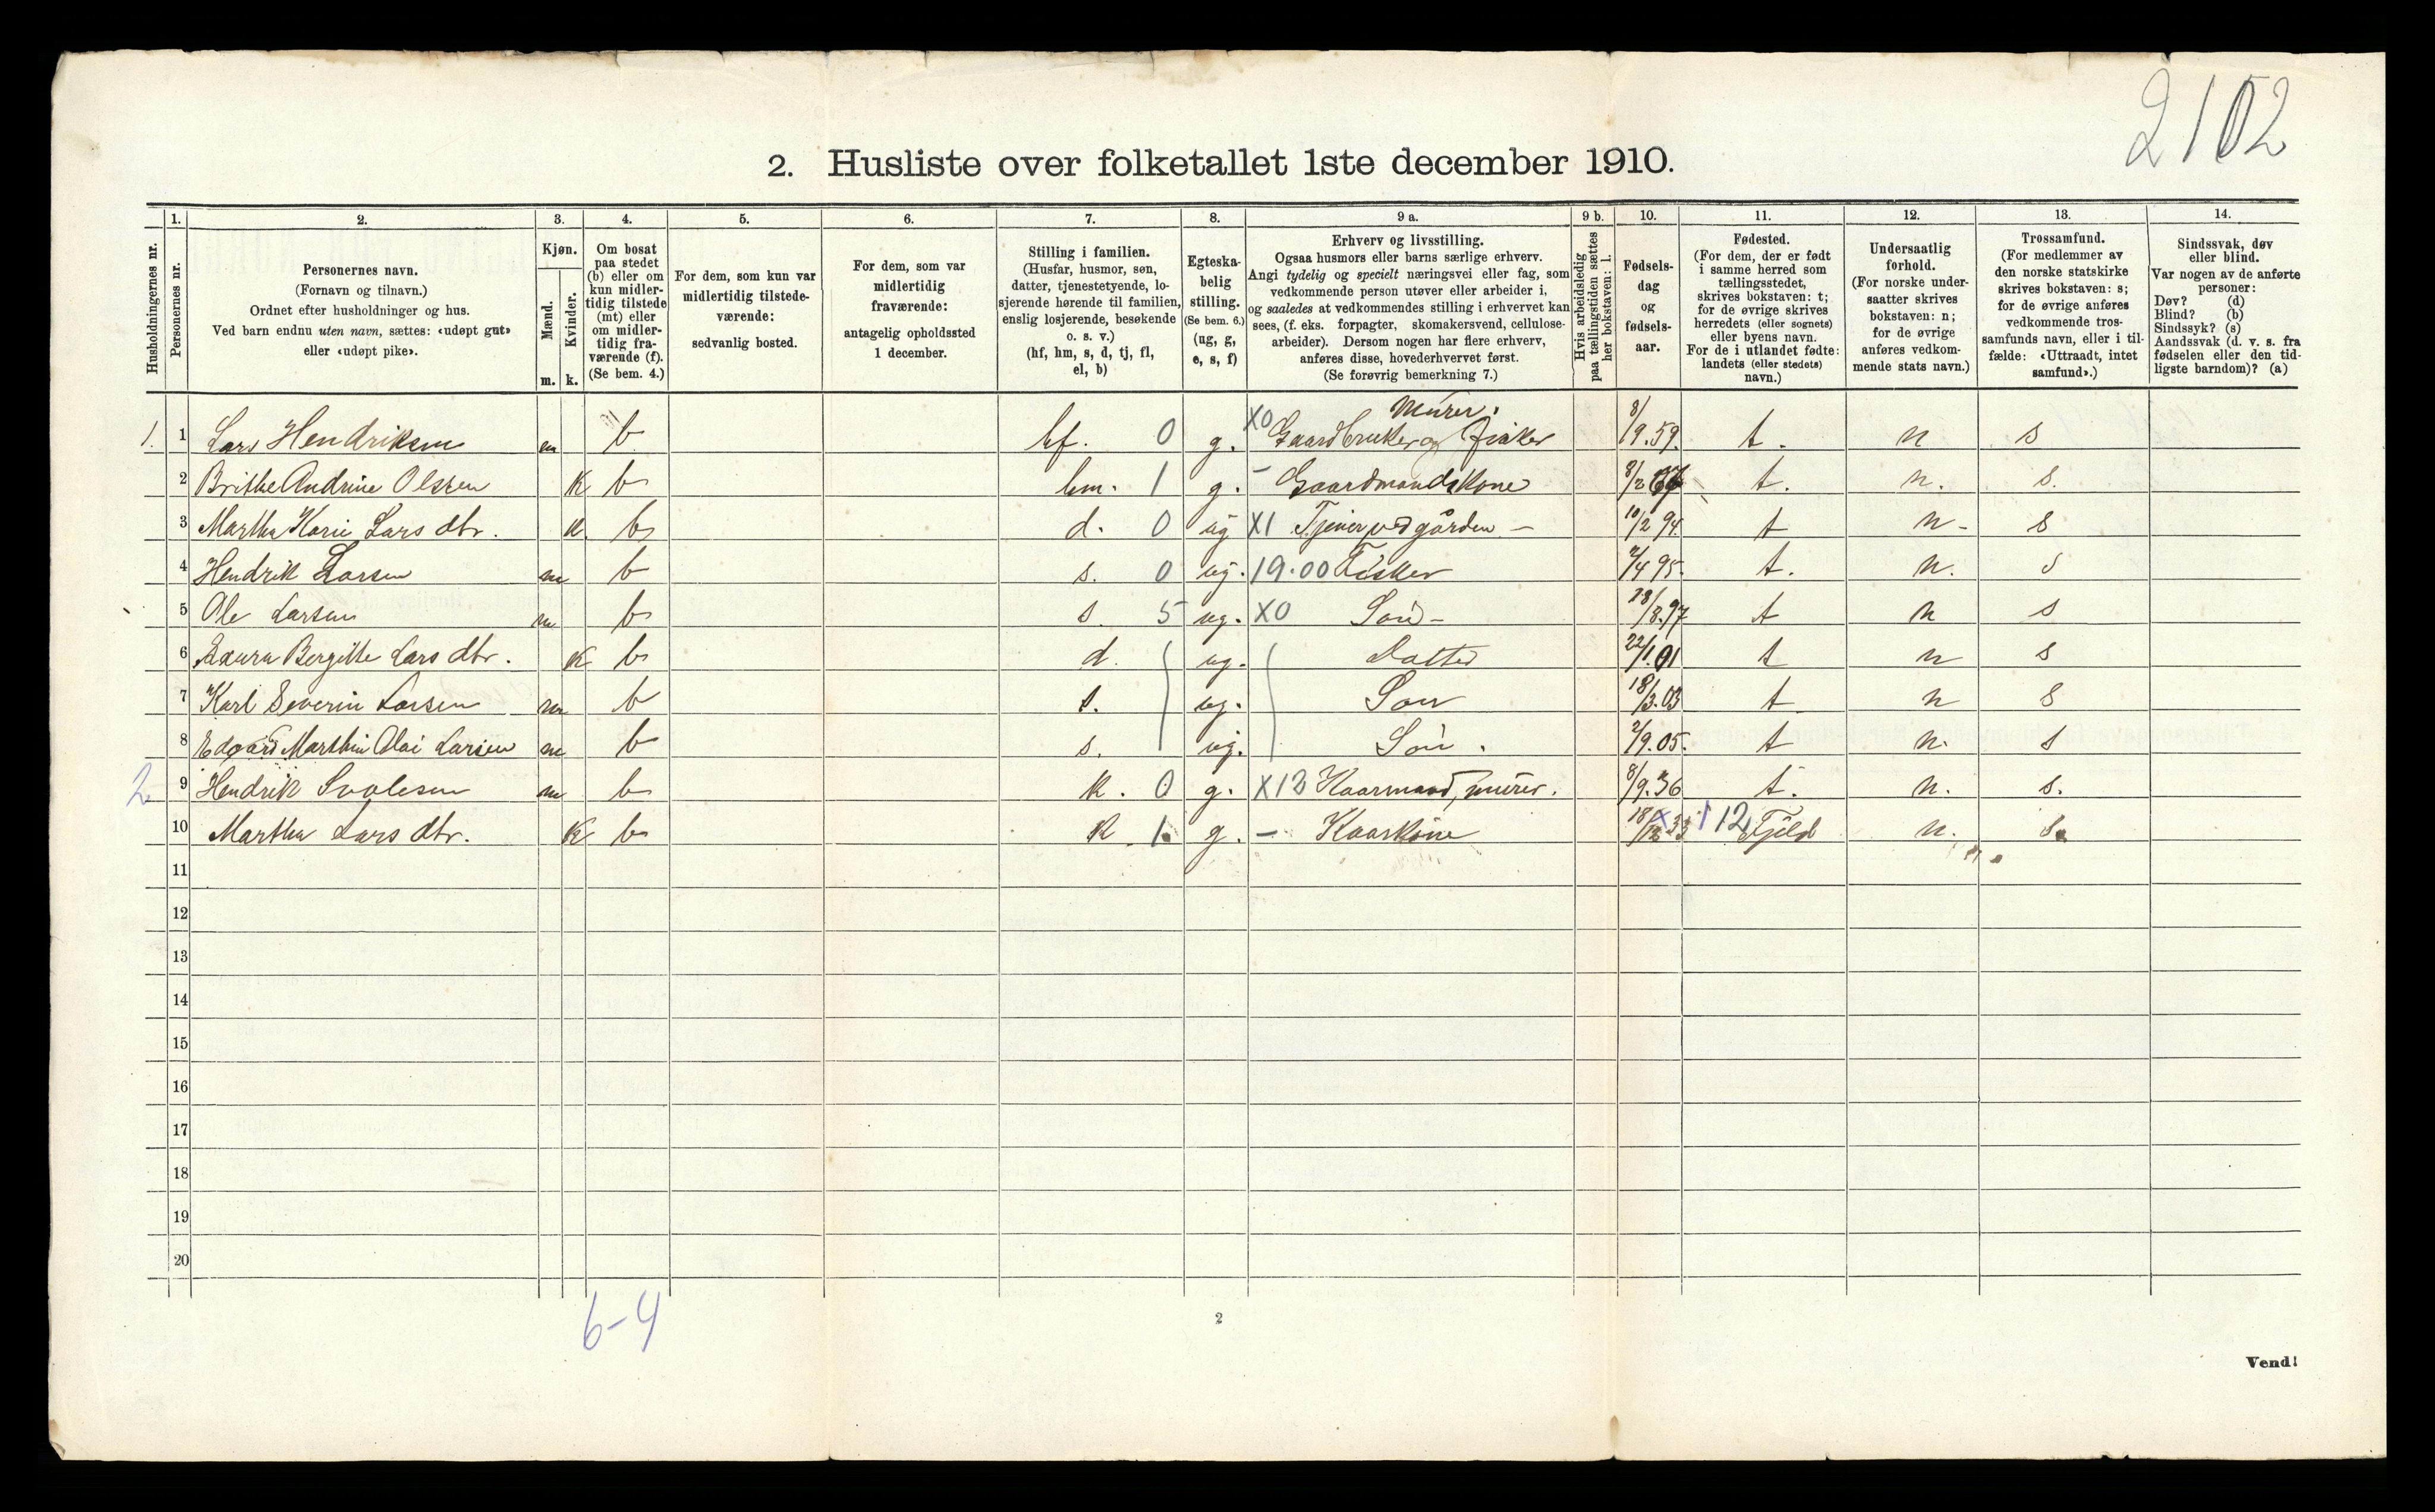 2102
2. Husliste over folketallet 1ste december 1910.
Husholdningernes nr.
1. Personernes nr.
2. Personernes navn.
(Fornavn og tilnavn.)
Ordnet efter husholdninger og hus.
Ved barn endnu uten navn, sættes: «udøpt gut»
eller «udøpt pike».
3. Kjøn.
Mænd. m.
Kvinder. k.
4. Om bosat
paa stedet
(b) eller om
kun midler-
tidig tilstede
(mt) eller
om midler-
tidig fra-
værende (f).
(Se bem. 4.)
5. For dem, som kun var
midlertidig tilstede-
værende:
sedvanlig bosted.
6. For dem, som var
midlertidig
fraværende:
antagelig opholdssted
1 december.
7. Stilling i familien.
(Husfar, husmor, søn,
datter, tjenestetyende, lo-
sjerende hørende til familien,
enslig losjerende, besøkende
o. s. v.)
(hf, hm, s, d, tj, fl,
el, b)
8. Egteska-
belig
stilling.
(Se bem. 6.)
(ug, g,
e, s, f)
9 a. Erhverv og livsstilling.
Ogsaa husmors eller barns særlige erhverv.
Angi tydelig og specielt næringsvei eller fag, som
vedkommende person utøver eller arbeider i,
og saaledes at vedkommendes stilling i erhvervet kan
sees, (f. eks. forpagter, skomakersvend, cellulose-
arbeider). Dersom nogen har flere erhverv,
anføres disse, hovederhvervet først.
(Se forøvrig bemerkning 7.)
9 b. Hvis arbeidsledig
paa tællingstiden sættes
her bokstaven: l.
10. Fødsels-
dag
og
fødsels-
aar.
11. Fødested.
(For dem, der er født
i samme herred som
tællingsstedet,
skrives bokstaven: t;
for de øvrige skrives
herredets (eller sognets)
eller byens navn.
For de i utlandet fødte:
landets (eller stedets)
navn.)
12. Undersaatlig
forhold.
(For norske under-
saatter skrives
bokstaven: n;
for de øvrige
anføres vedkom-
mende stats navn.)
13. Trossamfund.
(For medlemmer av
den norske statskirke
skrives bokstaven: s;
for de øvrige anføres
vedkommende tros-
samfunds navn, eller i til-
fælde: «Uttraadt, intet
samfund».)
14. Sindssvak, døv
eller blind.
Var nogen av de anførte
personer:
Døv? (d)
Blind? (b)
Sindssyk? (s)
Aandssvak (d. v. s. fra
fødselen eller den tid-
ligste barndom)? (a)
Murer.
1. 1 Lars Hendriksen m b hf. 0 g. X0 Gaardbruker og Fisker 8/9.59. t. n s
2 Brithe Andrine Olsen K b hm. 1 g. – Gaardmandskone 8/2 67 t. n. s.
3 Martha Karie Lars dtr. K. b d. 0 ug X1 Tjener ved gården – 10/2 94. t n- s
4 Hendrik Larsen m b s. 0 ug. 19.00 Fisker 7/4 95. t. n. s
5 Ole Larsen m b s. 5 ug. X0 Søn – 28/8.97 t n s
6 Laura Bergitte Lars dtr. K b d. ug. Datter 22/1.01 t n s
7 Karl Severin Larsen m b s. ug. Søn 18/3.03 t n s
8 Edvard Marthin Olai Larsen m b s. ug. Søn. 2/9.05. t n. s
2 9 Hendrik m b k. 0 g. X12 Kaarmand, murer. 8/9.36 t. n. s.
10 Martha Lars dtr. K b k. 1. g. – Kaarkone 18/12 33 112 Fjeld n. s.
11
12
13
14
15
16
17
18
19
20
6-4
2
Vend!